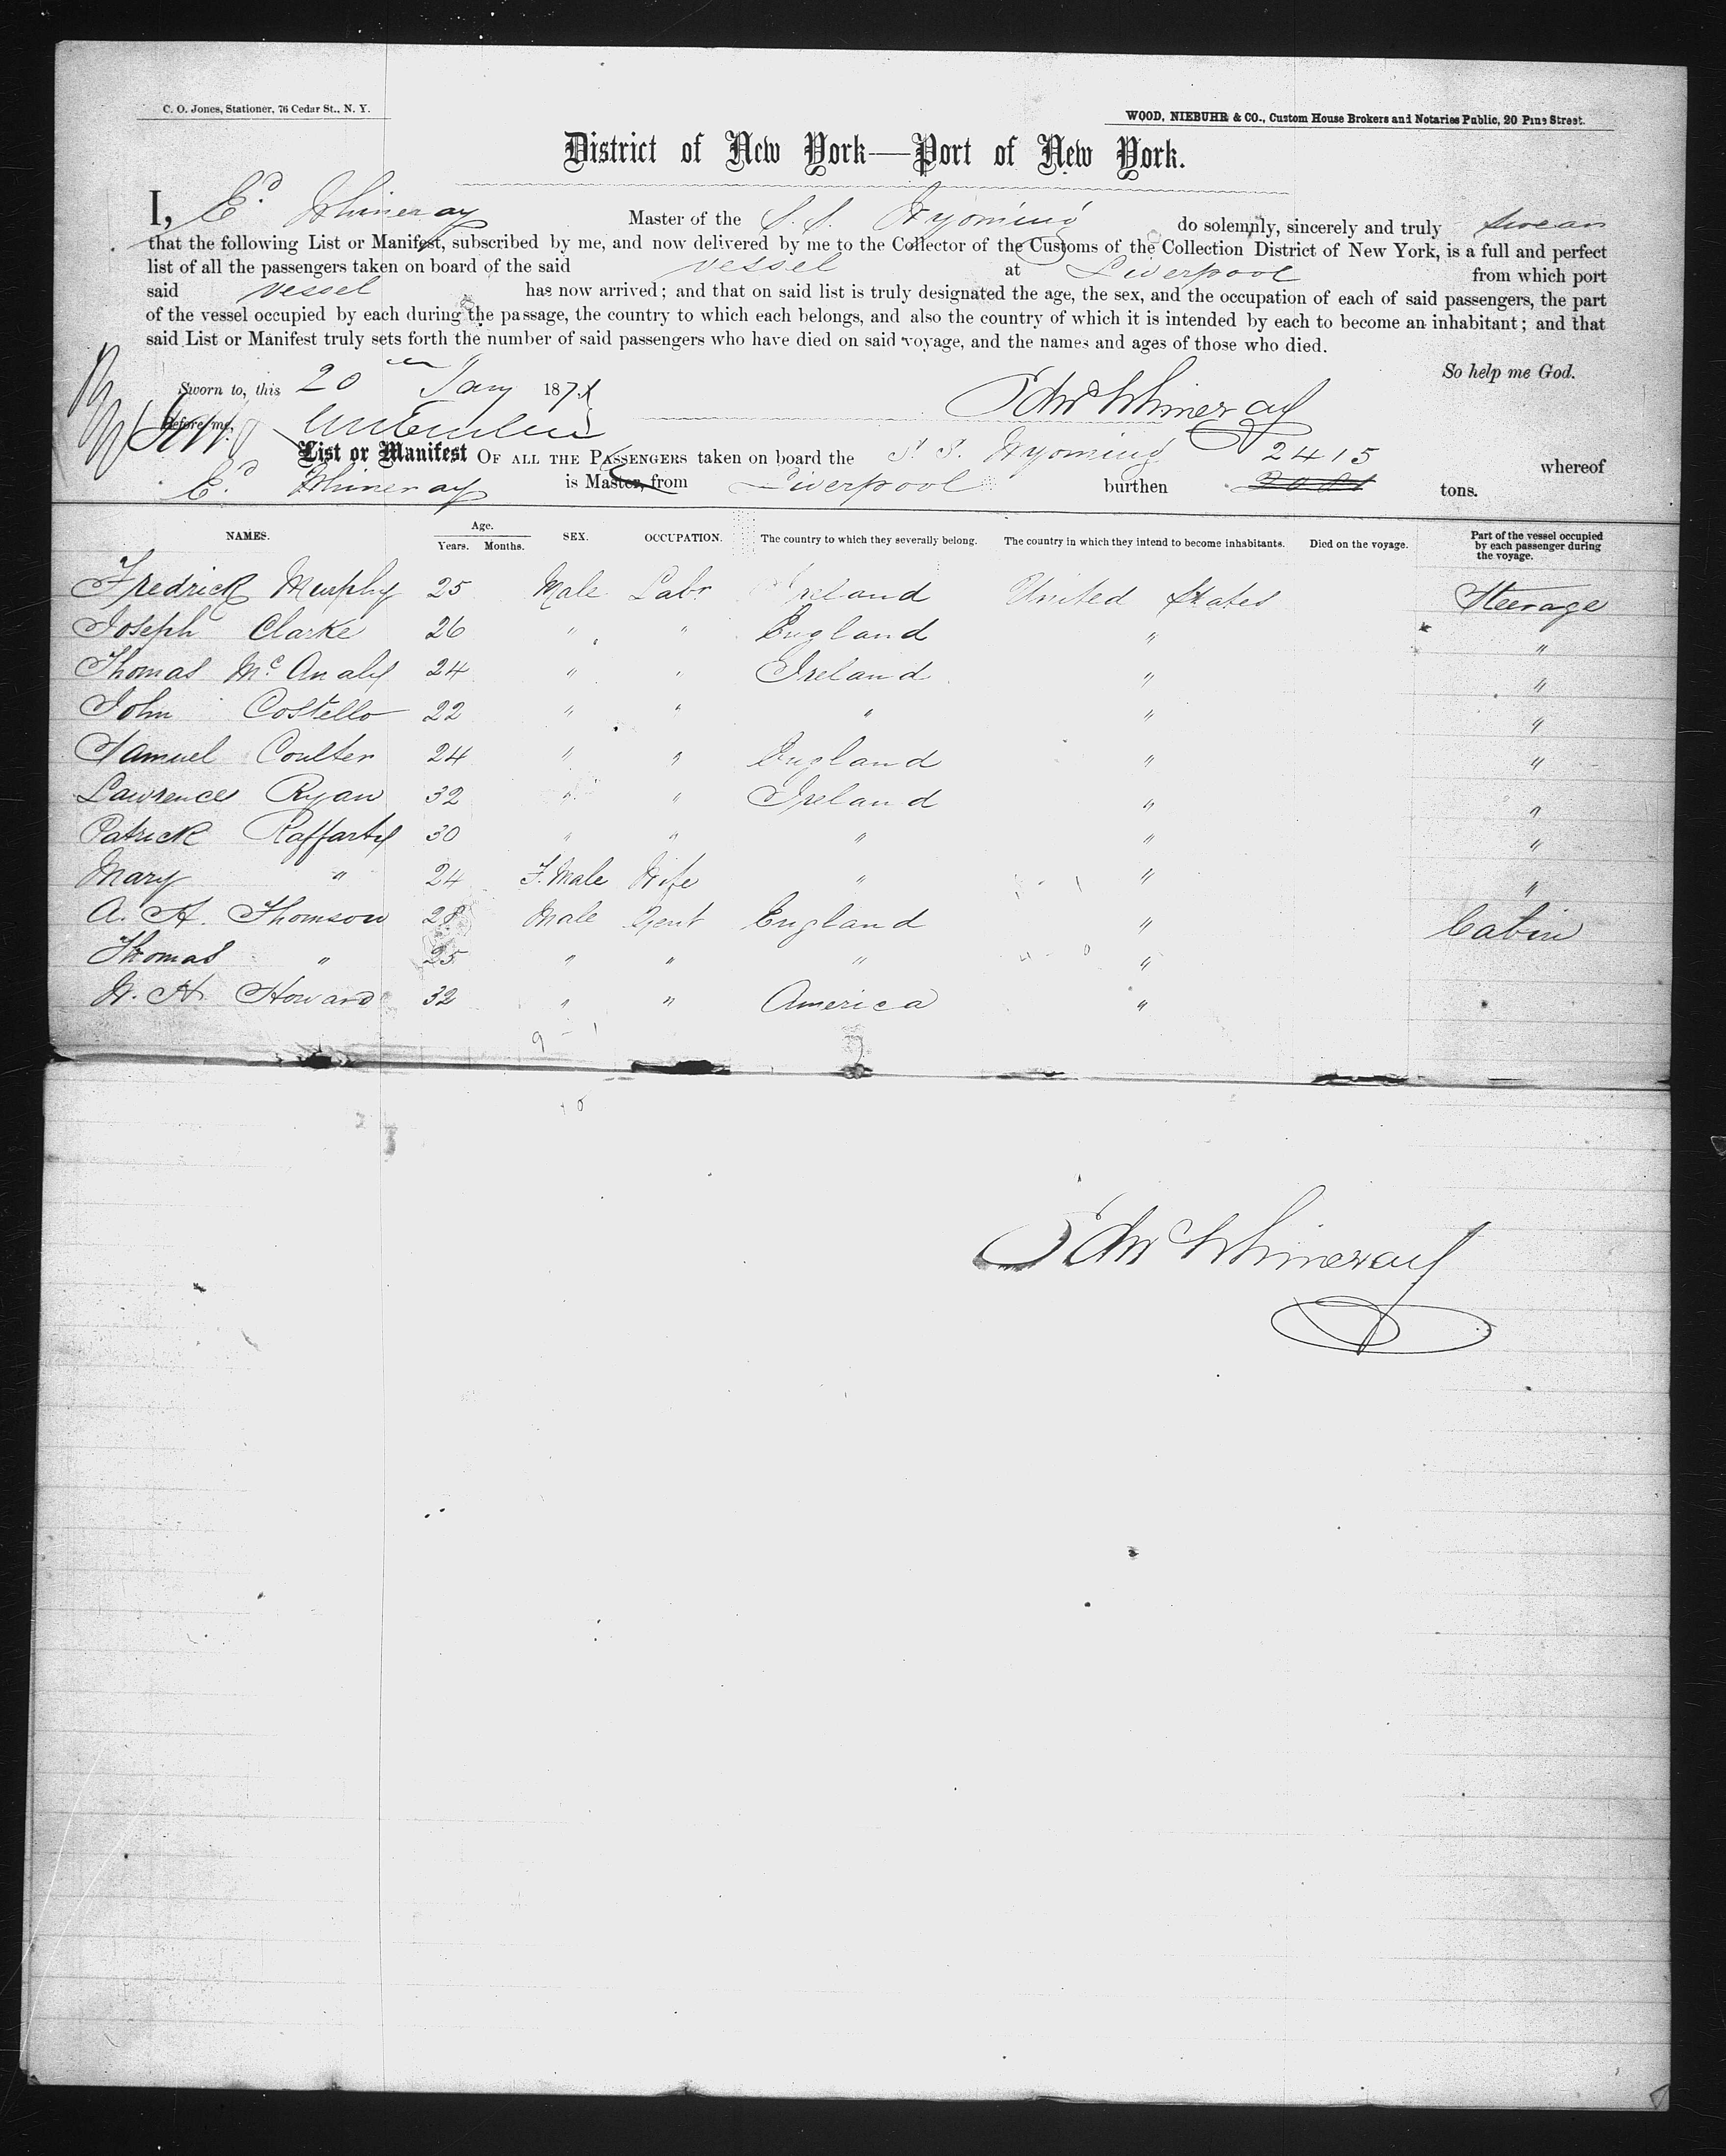 C. O. Jones, Stationer, 76 Cedar St., N. Y.
WOOD, NIEBUHR & CO., Custom House Brokers and Notaries Public, 20 Pine Street.
District of New York—Port of New York.
I, Ed. Whineray Master of the S. S. Wyoming do solemnly, sincerely and truly swear
that the following List or Manifest, subscribed by me, and now delivered by me to the Collector of the Customs of the Collection District of New York, is a full and perfect
list of all the passengers taken on board of the said vessel at Liverpool from which port
said vessel has now arrived; and that on said list is truly designated the age, the sex, and the occupation of each of said passengers, the part
of the vessel occupied by each during the passage, the country to which each belongs, and also the country of which it is intended by each to become an inhabitant; and that
said List or Manifest truly sets forth the number of said passengers who have died on said voyage, and the names and ages of those who died.
So help me God.
Sworn to, this 20th Jany 187
Edw Whineray
Before me,
List or Manifest OF ALL THE PASSENGERS taken on board the S. S. Wyoming 2415 whereof
Ed. Whineray is Master, from Liverpool burthen tons.
NAMES. Age. Years. Months. SEX. OCCUPATION. The country to which they severally belong. The country in which they intend to become inhabitants. Died on the voyage. Part of the vessel occupied by each passenger during the voyage.
Fredrick Murphy 25 Male Labr Ireland United States Steerage
Joseph Clarke 26 " " England " "
Thomas McAnaly 24 " " Ireland " "
John Costello 22 " " " " "
Samuel Coulter 24 " " England " "
Lawrence Ryan 32 " " Ireland " "
Patrick Raffarty 30 " " " " "
Mary " 24 F. Male Wife " " "
A. H. Thomson 28 Male Gent England " Cabin
Thomas " 25 " " " "
W. H. Howard 32 " " America "
9 - 1
Edw Whineray